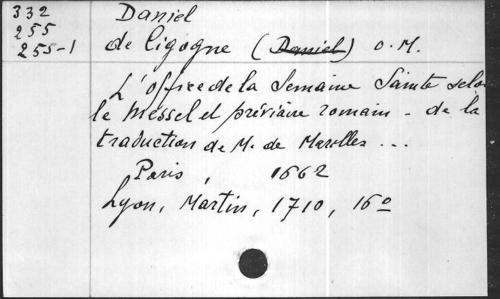 332
255
255-1
Daniel
de Ligogne (Daniel) O.M.
L'office de la Semaine Sainte selon
le Messel et préviaire romain - de la
traduction de M. de Marolles ...
Paris, 1662
Lyon, Martin, 1710, 16º